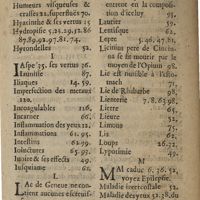 Humeurs visqueuses &
crasses 12. superflues 70.
Hyacinthe & ses vertus 15
Hydropisie 5,21,29,52.86
87.89.92.97.81.74.
Hyrondelles 52.
I
IAspe 35. ses vertus 96.
Inimitié 87.
Iliaques 14.59.
Imperfection des metaux
120.
Incoagulables 116.
Incarner 66.
Inflammation des yeux 22.
Inflammations 61.95.
Intestins 62.
Iointures 63.97.
Iuoire & ses effects 49.
Iusquiame 62.
L
LAc de Geneue ne con-
tient aucunes escreuis-
entrent en la composi-
tion d'iceluy
Laurier 91.
Lentisque
Lepre 5.46,47.81.
Licinius pere de Cincin-
na se fit mourir par le
moyen de l'Opium 98.
Lie est nuisible à l'esto-
mach 71.
Lie de Rhubarbe 98.
Lienterie 7,8.63,98.
Lierre 76.
Lieure 52.
Limons 70.
Lis 62.
Loups 52.
Lypotimie 49.
M
MAl caduc 6.36.52,
voyez Epilepsie.
Maladie inexecutable 52.
Maladie des yeux 52.28,du